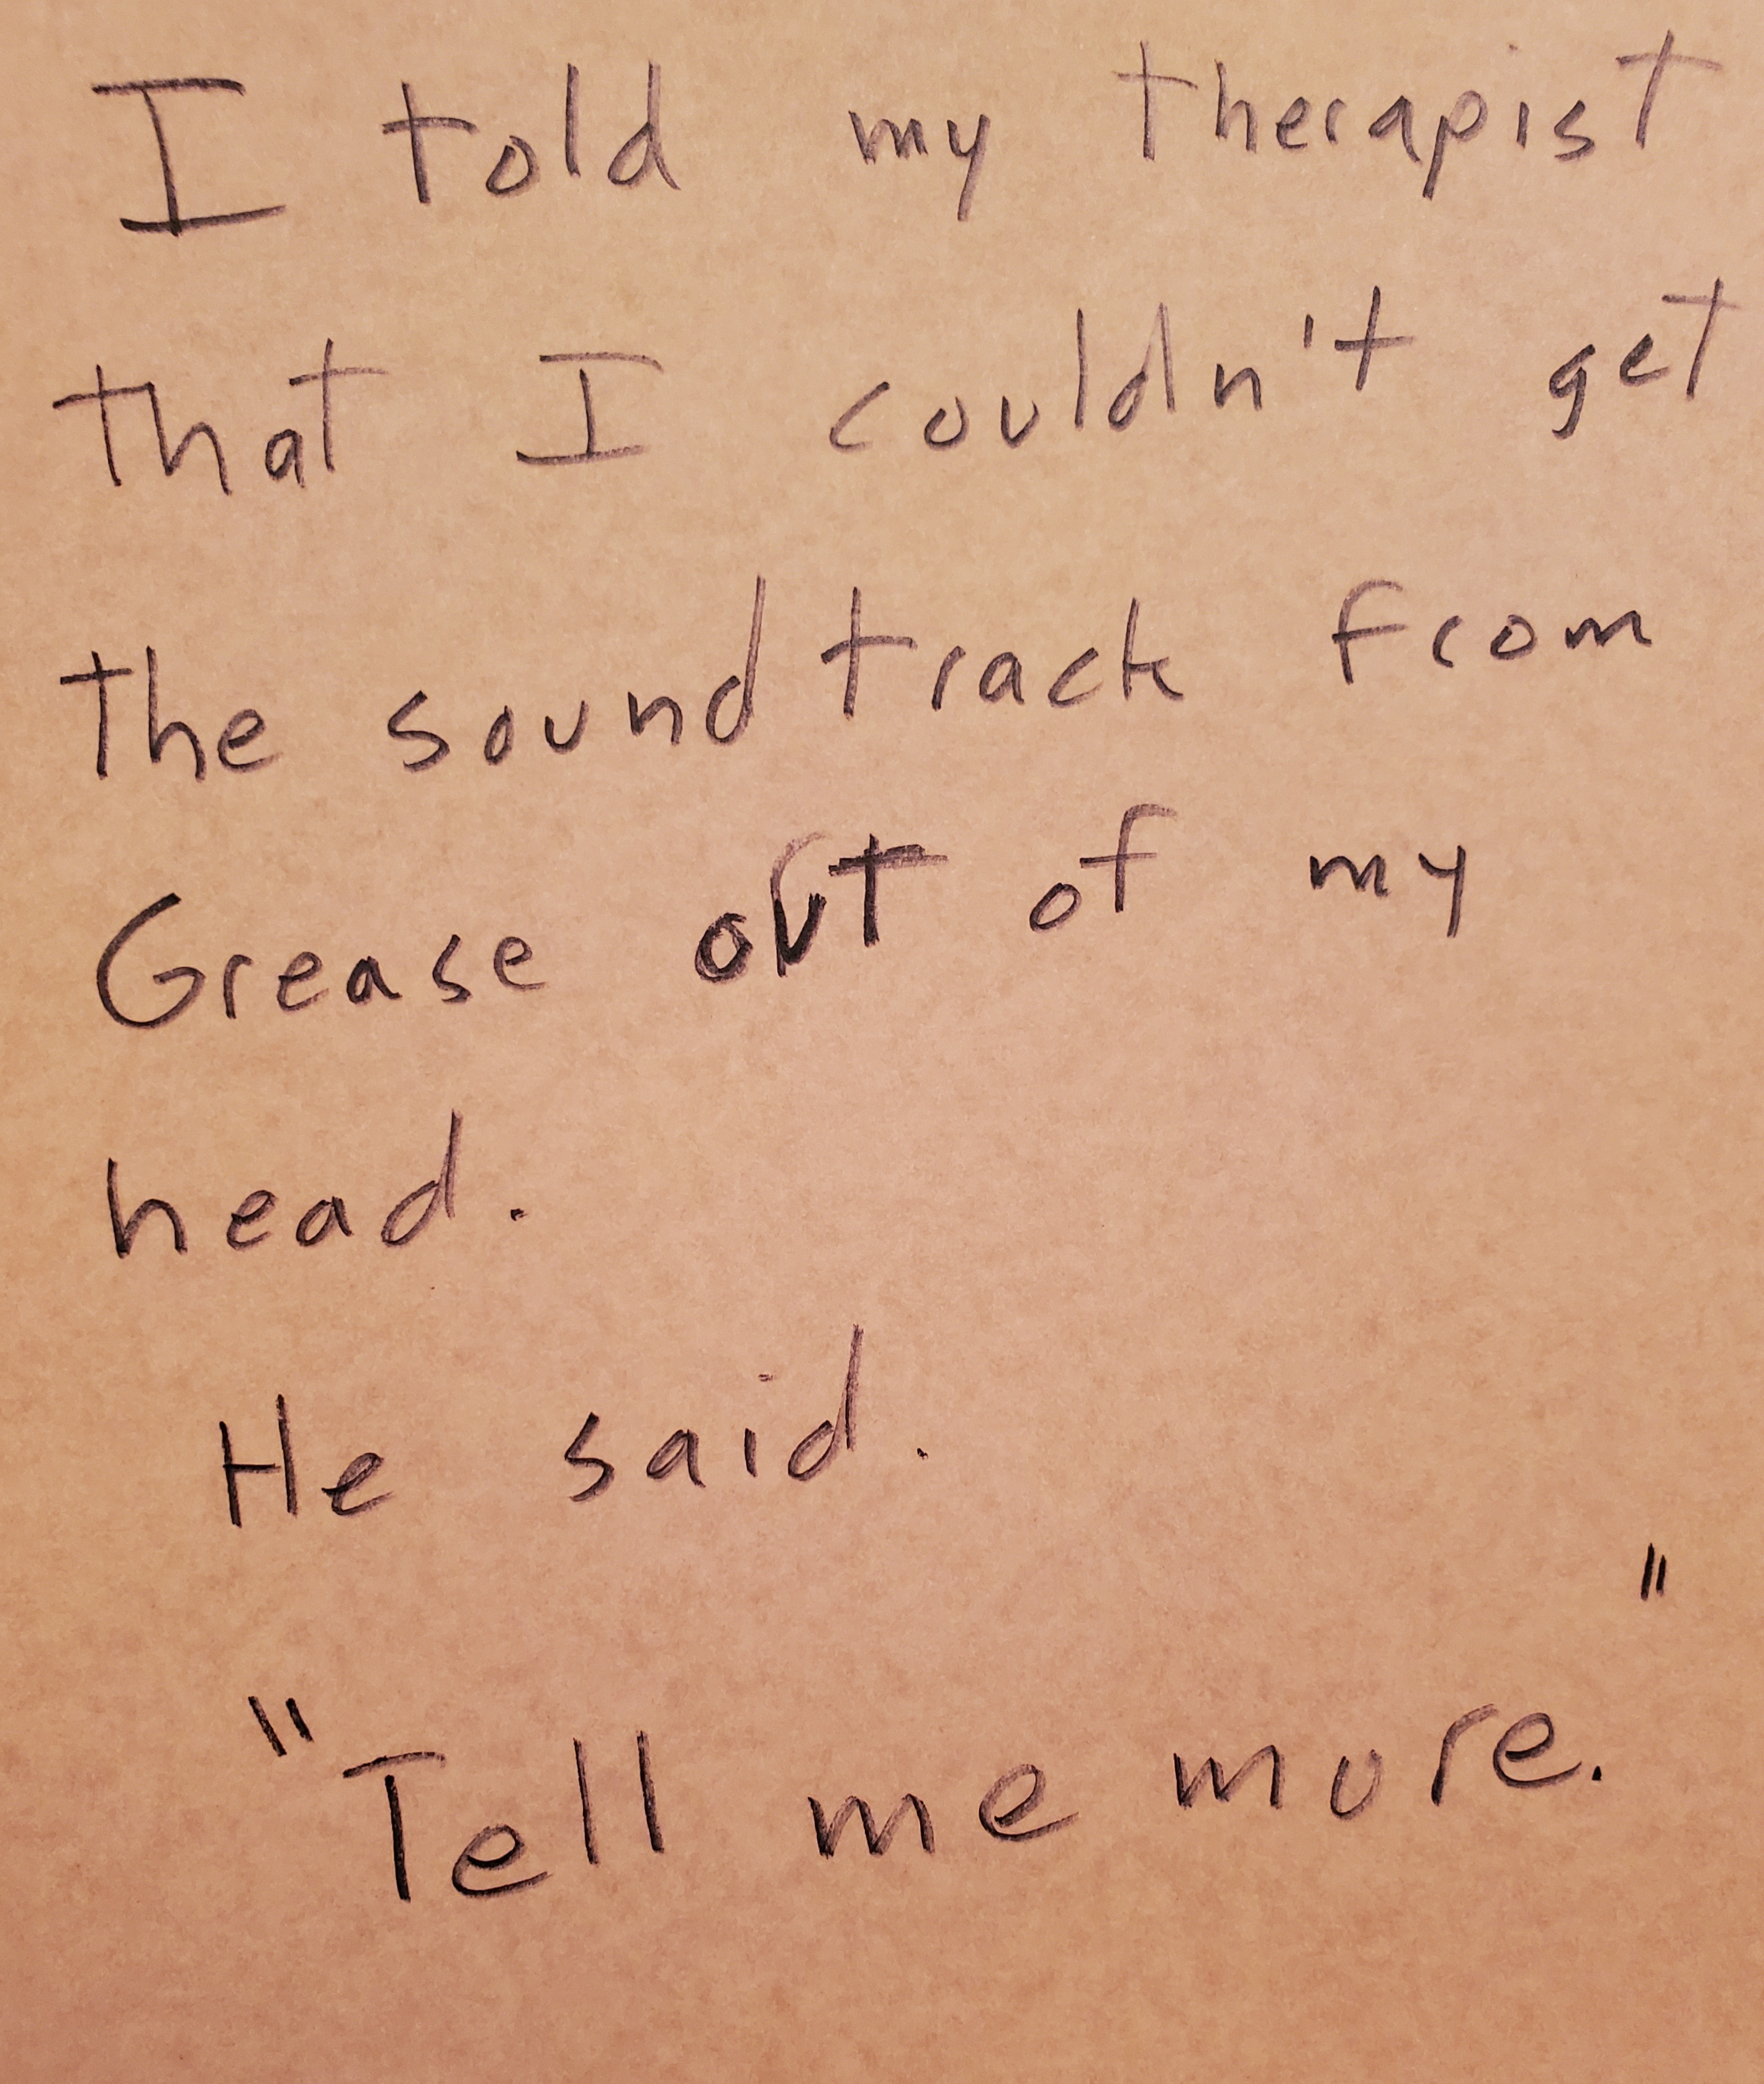 I told my therapist
that I couldn't get
the soundtrack from
Grease out of my
head.
He said.
"Tell me more."